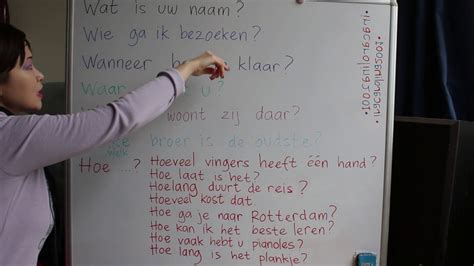 Wat is uw naam?
Wie ga ik bezoeken?
Wanneer klaar?
Waar u?
woont zij daar?
broer is de oudste?
Hoe ....? Hoeveel vingers heeft één hand?
Hoe laat is het?
Hoelang duurt de reis?
Hoeveel kost dat.
Hoe ga je naar Rotterdam?
Hoe kan ik het beste leren?
Hoe vaak hebt u pianoles?
Hoe lang is het plankje?